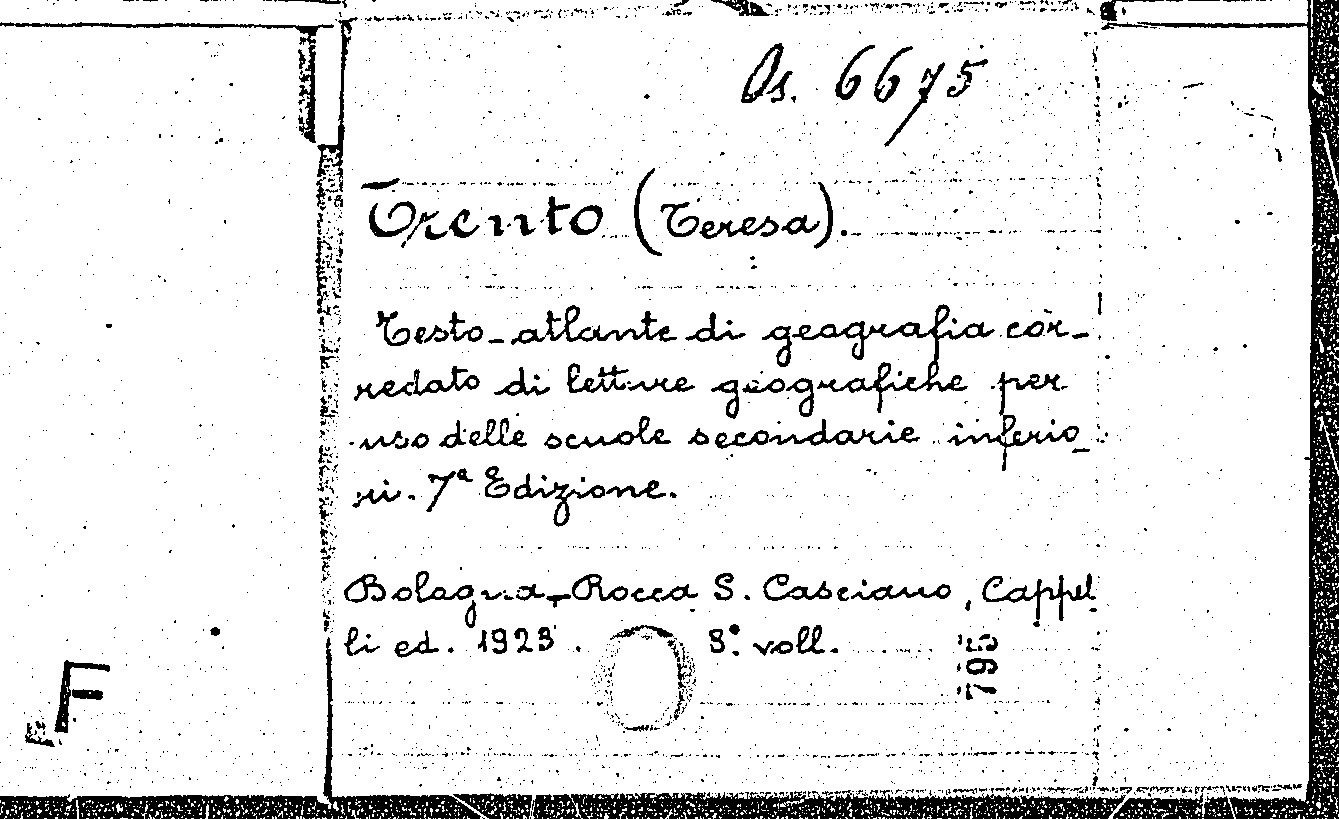 Os. 6675
Trento (Teresa).
Testo-atlante di geografia cor-
redato di letture geografiche per
uso delle scuole secondarie inferio-
ri. 7ª Edizione.
Bologna-Rocca S. Casciano, Cappel
li ed. 1923. 8º voll.
795
F